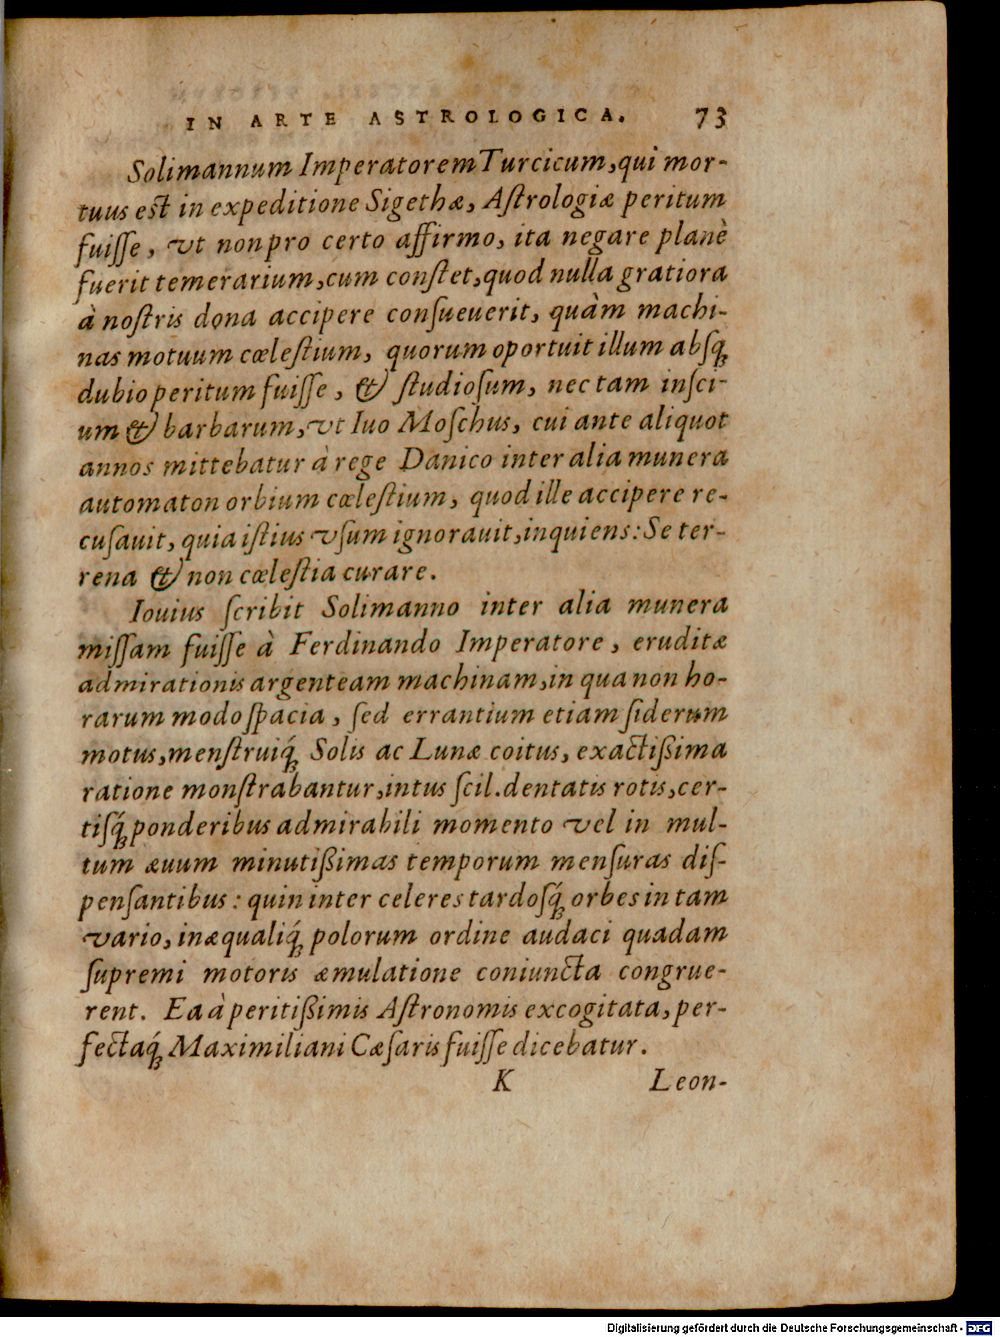 IN ARTE ASTROLOGICA. 73
Solimannum Imperatorem Turcicum, qui mor-
tuus est in expeditione Sigethæ, Aſtrologiæ peritum
fuiſſe, vt non pro certo affirmo, ita negare planè
fuerit temerarium, cum conſtet, quod nulla gratiora
à noſtris dona accipere conſueuerit, quàm machi-
nas motuum cœleſtium, quorum oportuit illum absq́
dubio peritum fuiſſe, & ſtudioſum, nec tam inſci-
um & barbarum, vt Iuo Moſchus, cui ante aliquot
annos mittebatur à rege Danico inter alia munera
automaton orbium cœleſtium, quod ille accipere re-
cuſauit, quia iſtius vſum ignorauit, inquiens: Se ter-
rena & non cœleſtia curare.
Iouius ſcribit Solimanno inter alia munera
miſſam fuiſſe à Ferdinando Imperatore, eruditæ
admirationis argenteam machinam, in qua non ho-
rarum modo ſpacia, ſed errantium etiam ſiderum
motus, menſtruiq́ Solis ac Lunæ coitus, exactißima
ratione monſtrabantur, intus ſcil. dentatis rotis, cer-
tiſq́ ponderibus admirabili momento vel in mul-
tum æuum minutißimas temporum menſuras diſ-
penſantibus: quin inter celeres tardoſq́ orbes in tam
vario, inæqualiq́ polorum ordine audaci quadam
ſupremi motoris æmulatione coniuncta congrue-
rent. Ea à peritißimis Aſtronomis excogitata, per-
fectaq́ Maximiliani Cæſaris fuiſſe dicebatur.
K Leon-
Digitalisierung gefördert durch die Deutsche Forschungsgemeinschaft - DFG